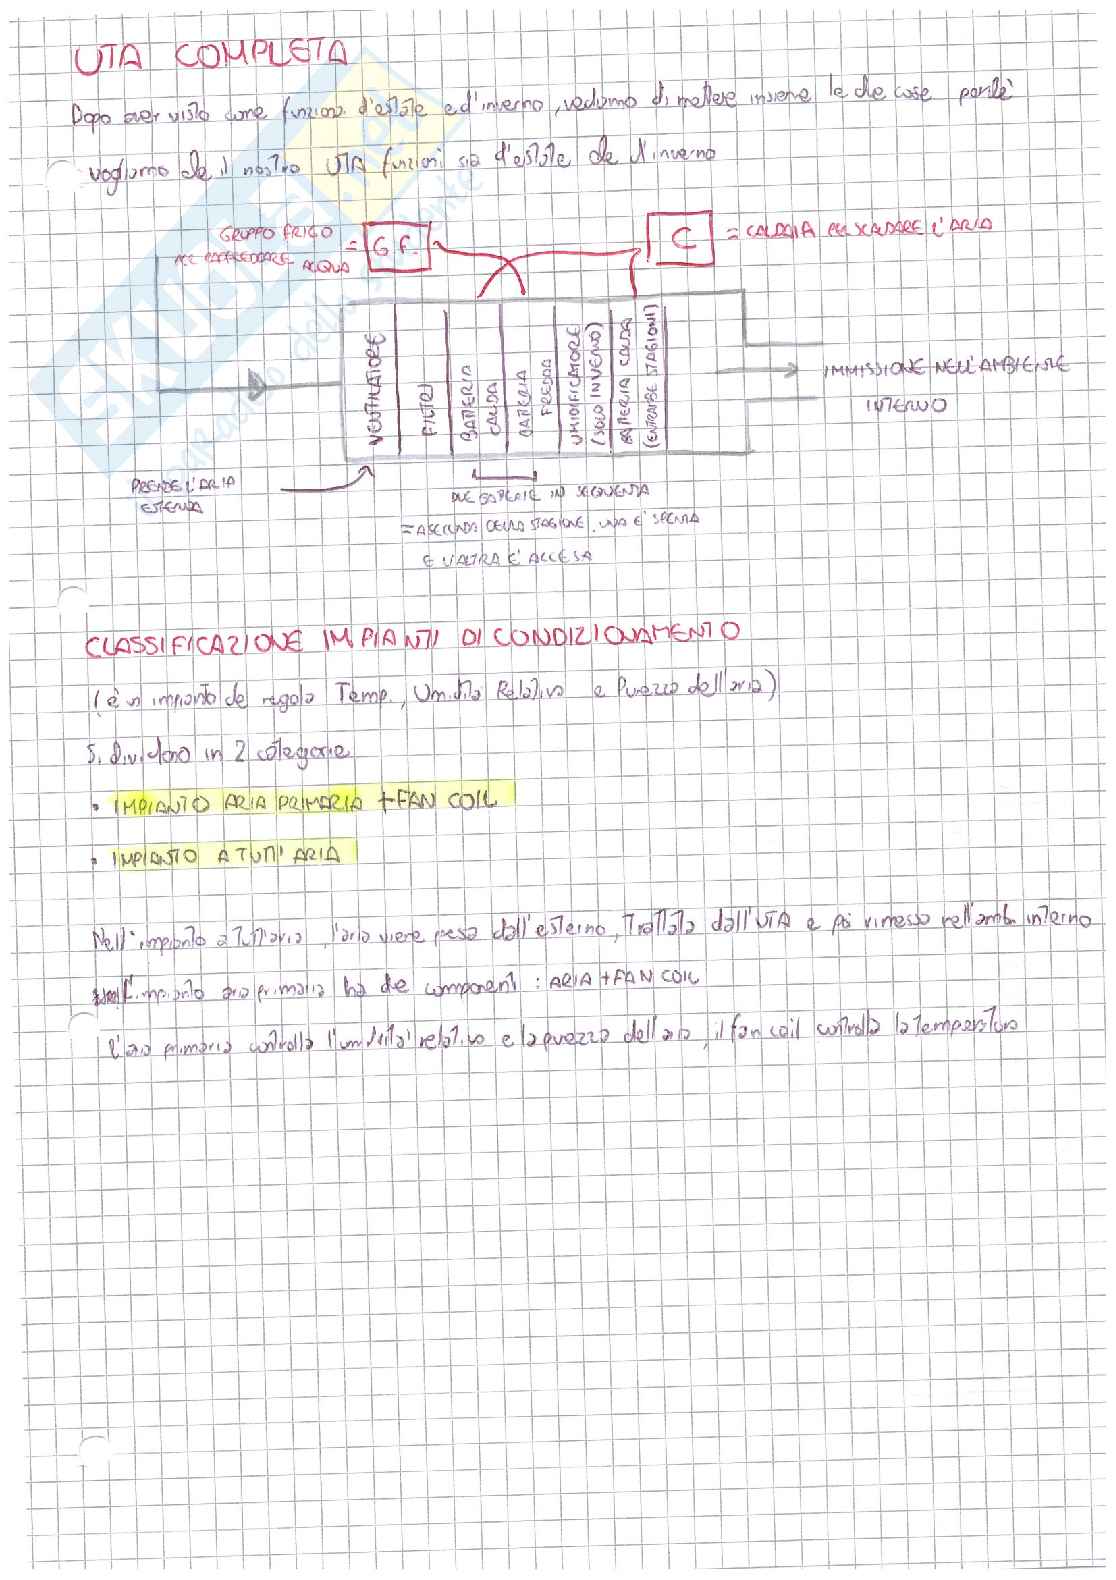 UTA COMPLETA
Dopo aver visto come funziona d'estate e d'inverno, vediamo di mettere insieme le due cose perché
vogliamo che il nostro UTA funzioni sia d'estate che d'inverno
GRUPPO FRIGO
PER RAFFREDDARE ACQUA
= G F.
C = CALDAIA PER SCALDARE L'ARIA
VENTILATORE
FILTRI
BATTERIA
CALDA
BATTERIA
FREDDA
UMIDIFICATORE
(SOLO INVERNO)
BATTERIA CALDA
(ENTRAMBE STAGIONI)
IMMISSIONE NELL'AMBIENTE
INTERNO
PRENDE L'ARIA
ESTERNA
DUE BATTERIE IN SEQUENZA
= A SECONDA DELLA STAGIONE, UNA E' SPENTA
E L'ALTRA E' ACCESA
CLASSIFICAZIONE IMPIANTI DI CONDIZIONAMENTO
(è un impianto che regola Temp., Umidità Relativa e Purezza dell'aria)
Si dividono in 2 categorie
• IMPIANTO ARIA PRIMARIA + FAN COIL
• IMPIANTO A TUTT'ARIA
Nell'impianto a tutt'aria, l'aria viene presa dall'esterno, trattata dall'UTA e poi rimessa nell'amb. interno
L'impianto aria primaria ha due componenti: ARIA + FAN COIL
L'aria primaria controlla l'umidità relativa e la purezza dell'aria, il fan coil controlla la temperatura
SKUOLA.net